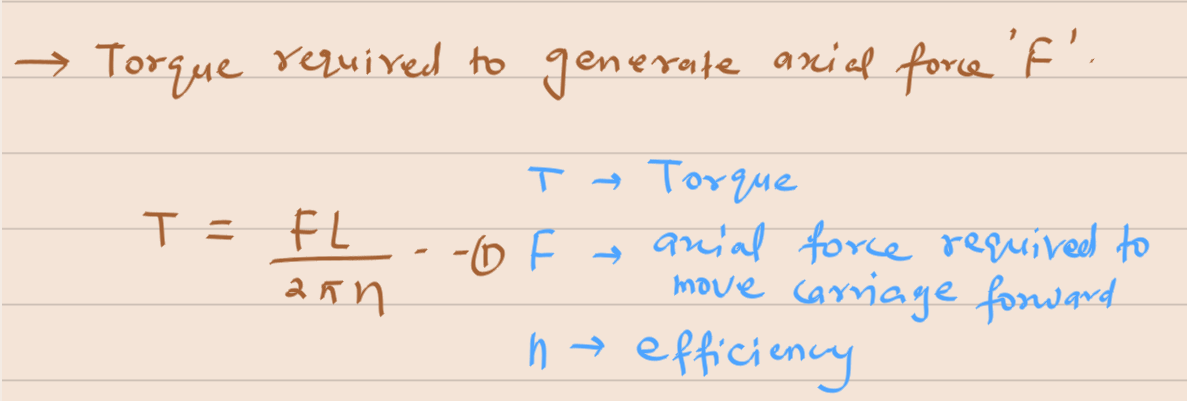 → Torque required to generate axial force 'F'.
T = FL / 2πη - - ①
T → Torque
F → axial force required to
move carriage forward
η → efficiency